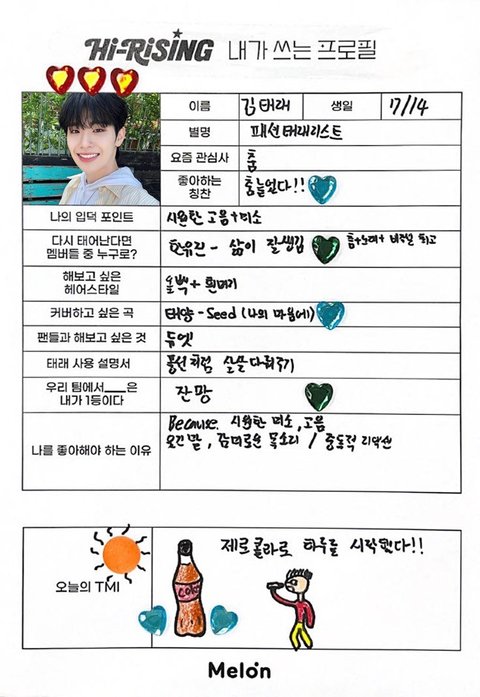 Hi-RiSiNG 내가 쓰는 프로필
이름 김태래 생일 7/14
별명 패션태래리스트
요즘 관심사 춤
좋아하는 칭찬 춤 늘었다!!
나의 입덕 포인트 시원한 고음+미소
다시 태어난다면 멤버들 중 누구로? 한유진 - 삶이 잘생김 춤+노래+ 비주얼 최고
해보고 싶은 헤어스타일 올백+흰머리
커버하고 싶은 곡 태양 - Seed (나의 마음에)
팬들과 해보고 싶은 것 듀엣
태래 사용 설명서 풍선처럼 살살 다뤄주기
우리 팀에서___은 내가 1등이다 잔망
나를 좋아해야 하는 이유 Because. 시원한 미소, 고음
웃긴 말, 감미로운 목소리 / 중독적 리액션
오늘의 TMI 제로콜라로 하루를 시작했다!!
COKE
Melon